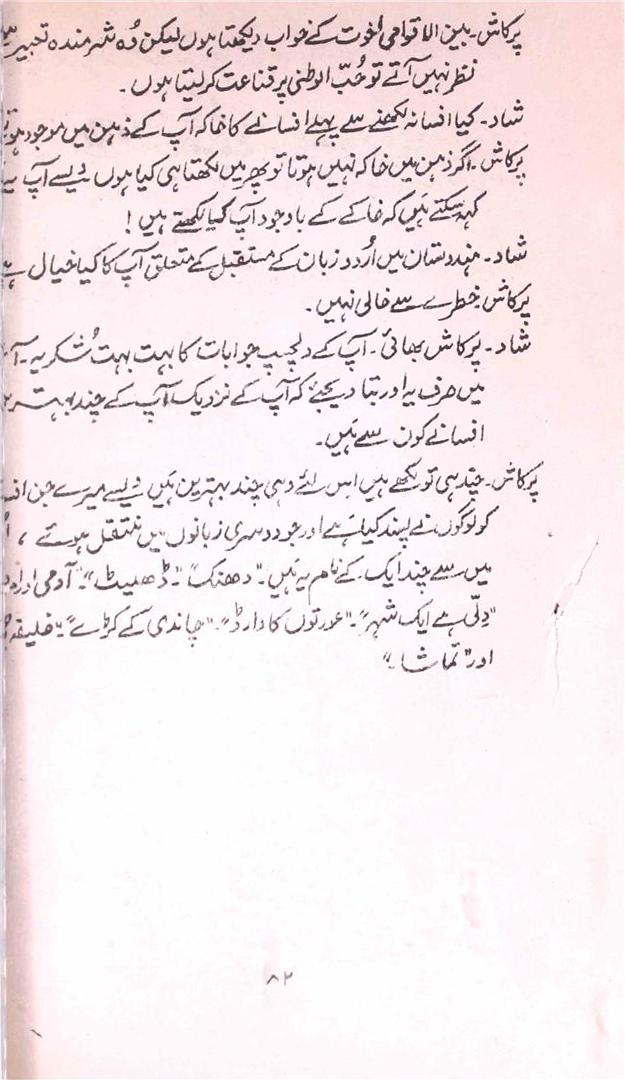 پرکاش۔ بین الاقوامی اخوت کے خواب دیکھتا ہوں لیکن وہ شرمندہ تعبیر
نظر نہیں آتے تو حُبّ الوطنی پر قناعت کر لیتا ہوں۔
شاد۔ کیا افسانہ لکھنے سے پہلے افسانے کا خاکہ آپ کے ذہن میں موجود
پرکاش۔ اگر ذہن میں خاکہ نہیں ہوتا تو پھر میں لکھتا ہی کیا ہوں ویسے آپ
کہہ سکتے ہیں کہ خاکے کے باوجود آپ کیا لکھتے ہیں!
شاد۔ ہندوستان میں اُردو زبان کے مستقبل کے متعلق آپ کا کیا خیال ہے
پرکاش۔ خطرے سے خالی نہیں۔
شاد۔ پرکاش بھائی۔ آپ کے دلچسپ جوابات کا بہت بہت شُکریہ۔
میں صرف یہ اور بتا دیجئے کہ آپ کے نزدیک آپ کے چند
افسانے کون سے ہیں۔
پرکاش۔ چند ہی تو لکھے ہیں اس لئے وہی چند بہترین ہیں ویسے میرے جن
کو لوگوں نے پسند کیا ہے اور جو دوسری زبانوں میں منتقل ہوئے ،
میں سے چند ایک کے نام یہ ہیں۔ "دھنک"۔ "ڈھیٹ"۔ "آدمی اور
"دِلّی ہے ایک شہر"۔ "عورتوں کا وارڈ"۔ "چاندی کے کڑے"۔ "خلیفہ
اور "تماشا۔"
۸۲